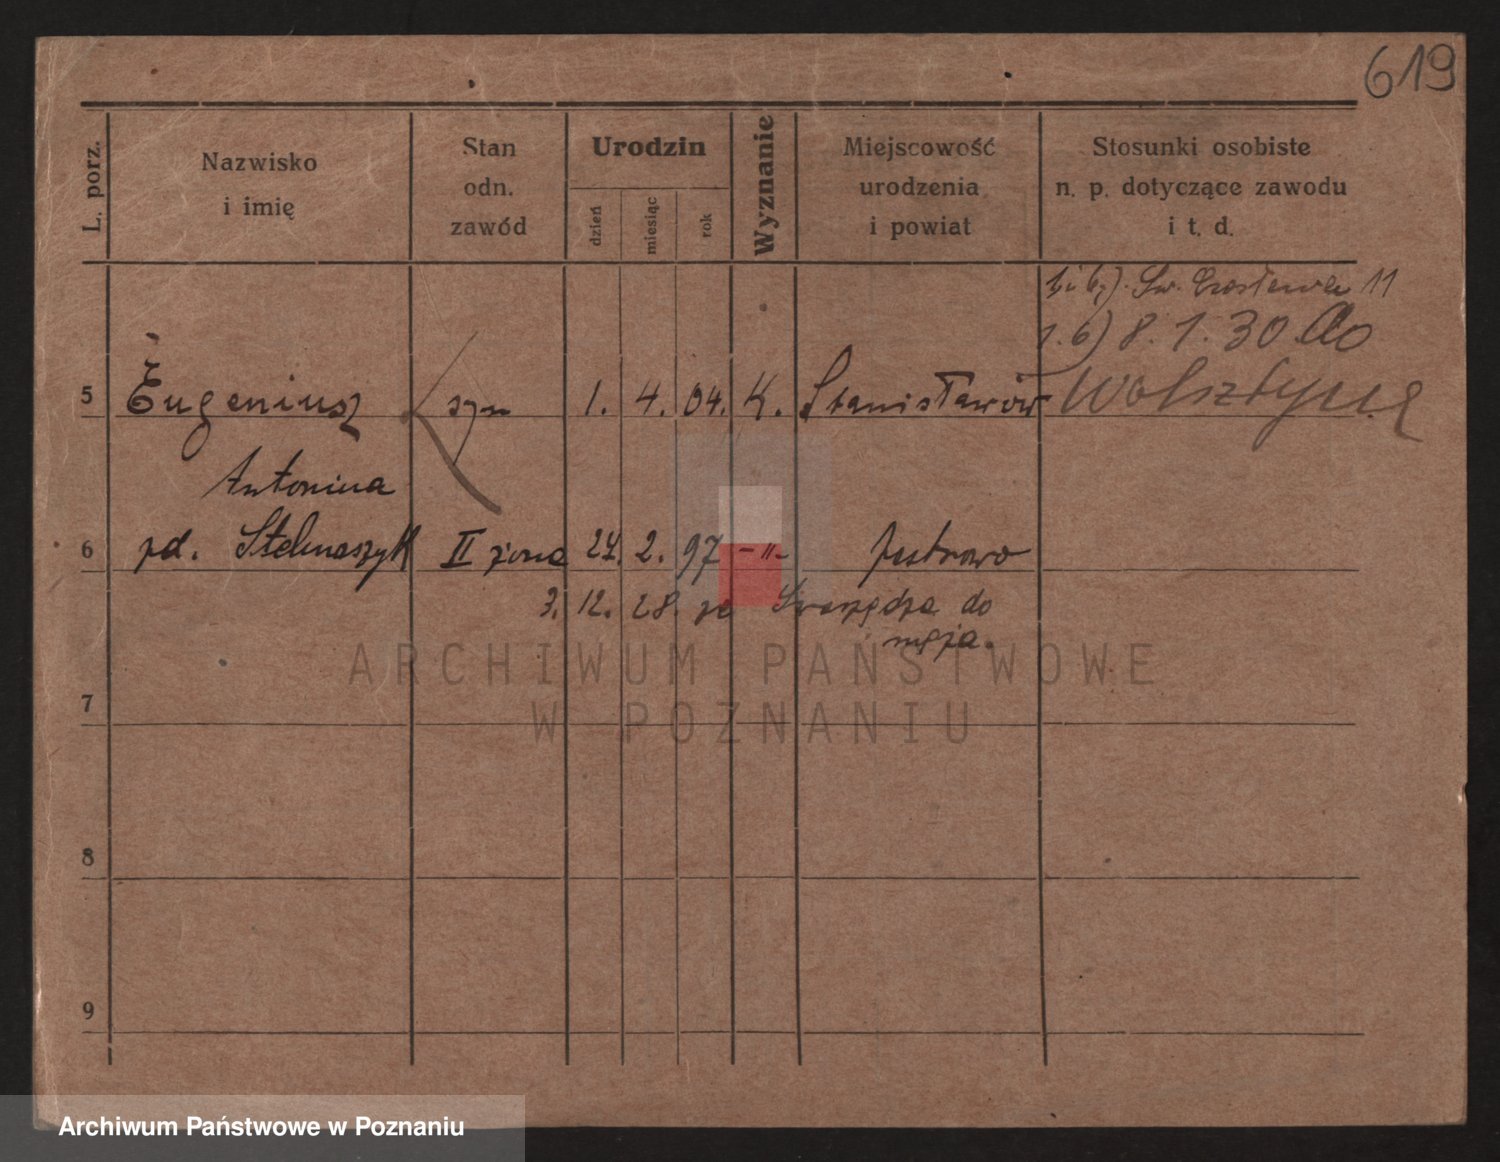 619
L. porz.
Nazwisko
i imię
Stan
odn.
zawód
Urodzin
dzień
miesiąc
rok
Wyznanie
Miejscowość
urodzenia
i powiat
Stosunki osobiste
n. p. dotyczące zawodu
i t. d.
Św. Czesława 11
8.1.30 do
5 Eugeniusz syn 1. 4. 04. K. Stanisławów Wolsztyna
Antonina
6 pd. Stelmaszyk II żona 24. 2. 97 -"-
3. 12. 28. ze Swarzędza do
męża.
7
8
9
ARCHIWUM PAŃSTWOWE
W POZNANIU
Archiwum Państwowe w Poznaniu